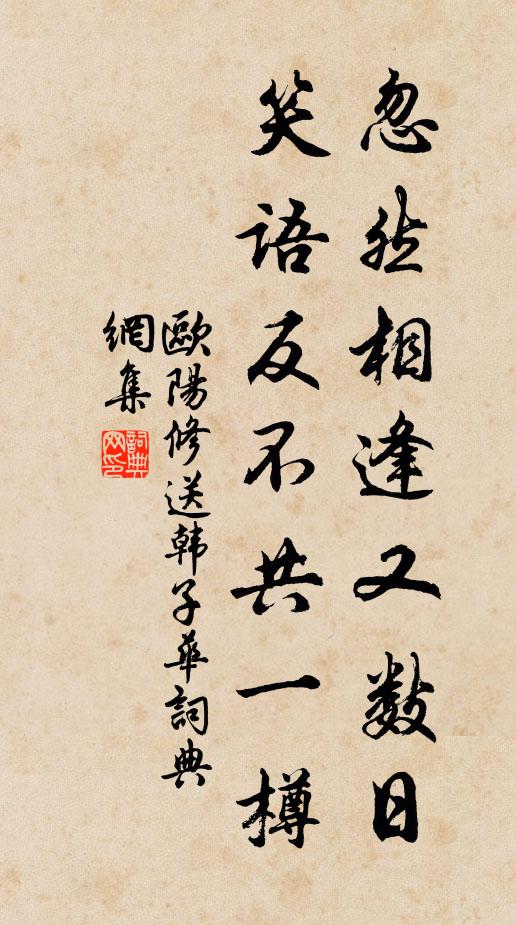 忽然相逢又数日
笑语反不共一樽
歐陽修送韩子華詞典
網集
詞典网印